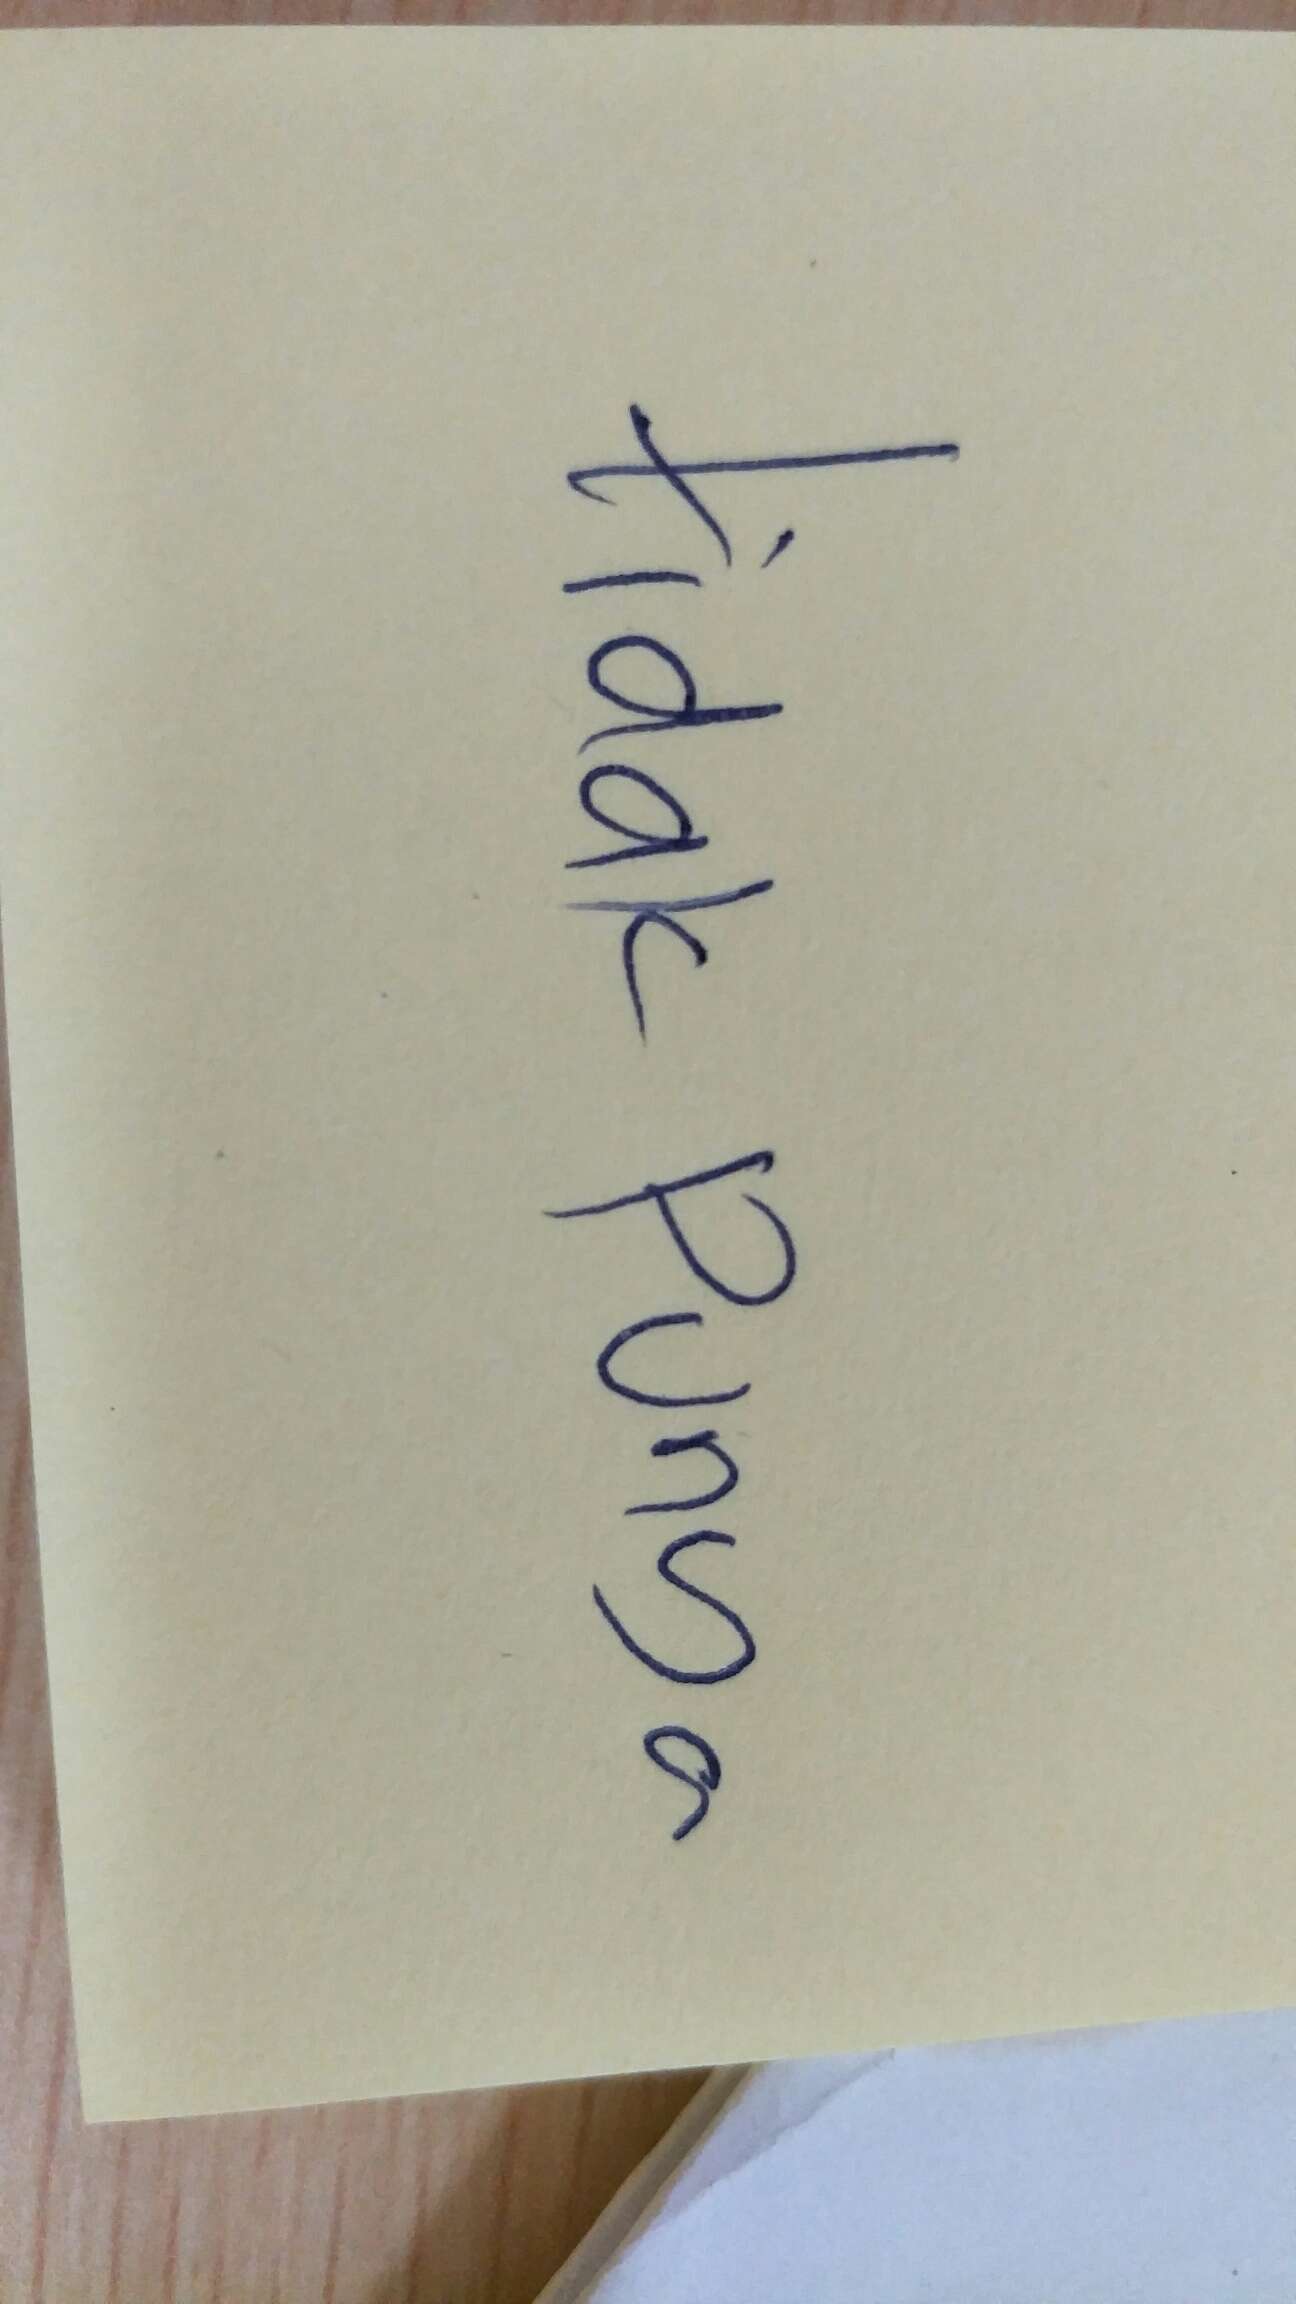 tidak Punya